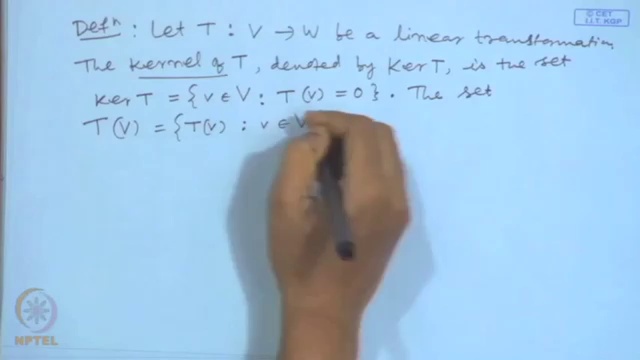 © CET
I.I.T. KGP
Defⁿ : Let T : V → W be a linear transformation
The kernel of T, denoted by Ker T, is the set
Ker T = { v ∈ V : T(v) = 0 } . The set
T(V) = { T(v) : v ∈ V
NPTEL